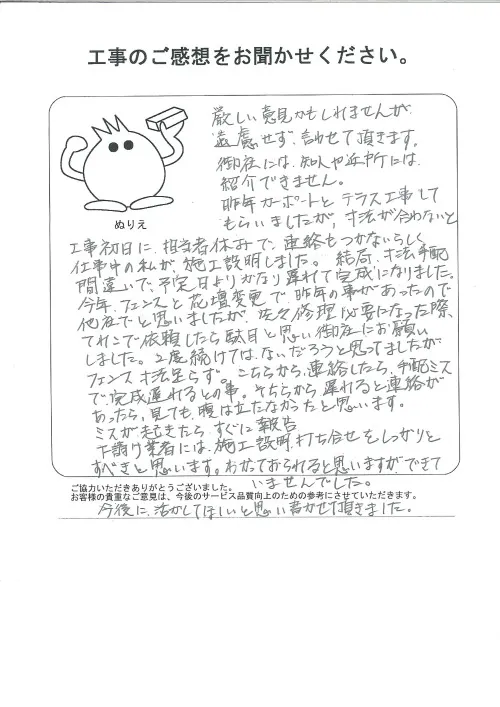 工事のご感想をお聞かせください。
厳しい意見かもしれませんが
遠慮せず、言わせて頂きます。
御社には、知人や近所には、
紹介できません。
昨年カーポートとテラス工事して
もらいましたが、寸法が合わないと
ぬりえ
工事初日に、担当者休みで、連絡もつかないらしく
仕事中の私が、施工説明しました。結局、寸法、手配
間違いで、予定日よりかなり遅れて完成になりました。
今年、フェンスと花壇変更で、昨年の事があったので
他社でと思いましたが、修理必要になった際、
で依頼したら駄目と思い御社にお願い
しました。2度続けては、ないだろうと思ってましたが
フェンス寸法足らず。こちらから、連絡したら、手配ミス
で、完成遅れるとの事。そちらから遅れると連絡が
あったら、見ても、腹は立たなかったと思います。
ミスが起きたら、すぐに報告
下請け業者には、施工説明、打ち合せをしっかりと
すべきと思います。わかっておられると思いますが、できて
いませんでした。
ご協力いただきありがとうございました。
お客様の貴重なご意見は、今後のサービス品質向上のための参考にさせていただきます。
今後に、活かしてほしいと思い書かせて頂きました。